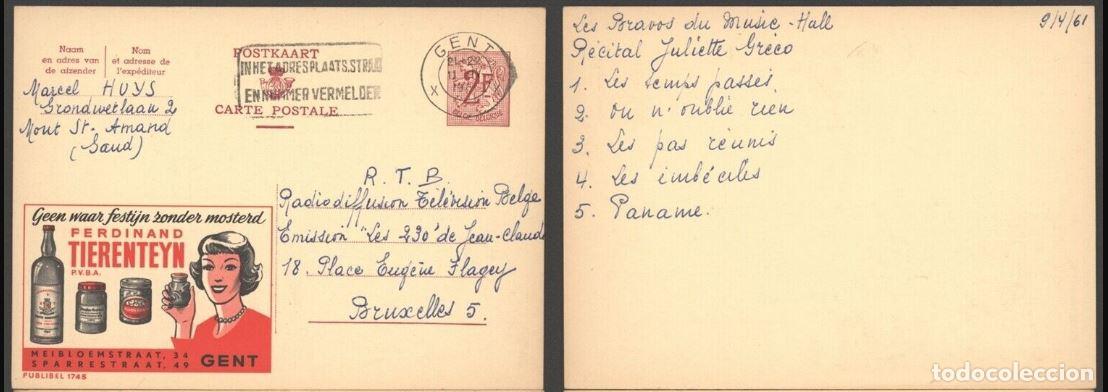 Naam
en adres van
de afzender
Nom
et adresse de
l'expéditeur
POSTKAART
IN HET ADRES PLAATS, STRAAT
EN NUMMER VERMELDEN
CARTE POSTALE
GENT
X X
2F
Marcel HUYS
Grondwetlaan 2
Mont St. Amand
(Gand)
R. T. B.
Radiodiffusion Télévision Belge
Emission "Les 230' de Jean-Claude
18. Place Eugène Flagey
Bruxelles 5.
Geen waar festijn zonder mosterd
FERDINAND
TIERENTEYN
P.V.B.A.
MEIBLOEMSTRAAT, 34
SPARRESTRAAT, 49 GENT
PUBLIBEL 1745
Les Bravos du Music-Hall 9/4/61
Récital Juliette Gréco
1. Les temps passés
2. On n'oublie rien
3. Les pas réunis
4. Les imbéciles
5. Paname.
todocoleccion